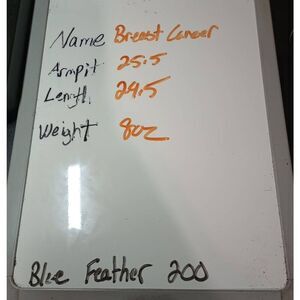 Name Breast Cancer
Armpit 25.5
Length 24.5
Weight 8oz
Blue Feather 200